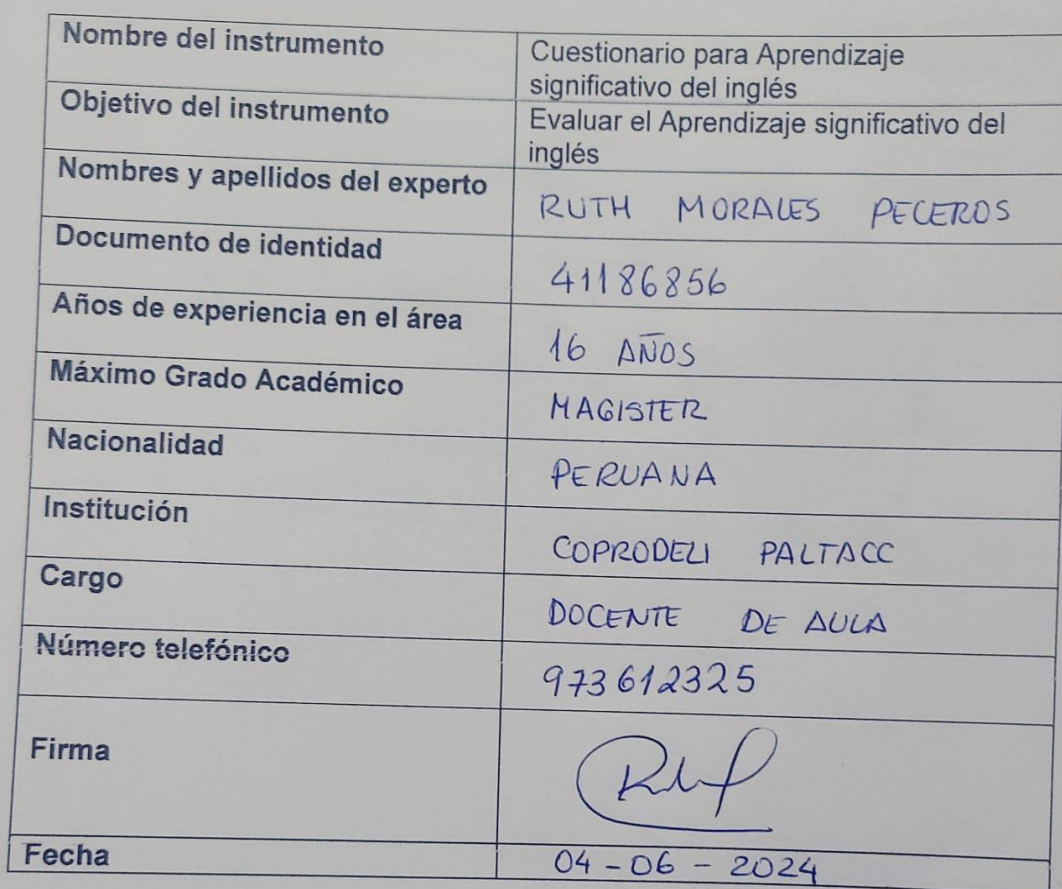 Nombre del instrumento
Cuestionario para Aprendizaje
significativo del inglés
Objetivo del instrumento
Evaluar el Aprendizaje significativo del
inglés
Nombres y apellidos del experto
RUTH MORALES PECEROS
Documento de identidad
41186856
Años de experiencia en el área
16 AÑOS
Máximo Grado Académico
MAGISTER
Nacionalidad
PERUANA
Institución
COPRODELI PALTACC
Cargo
DOCENTE DE AULA
Número telefónico
973612325
Firma
Fecha
04-06-2024